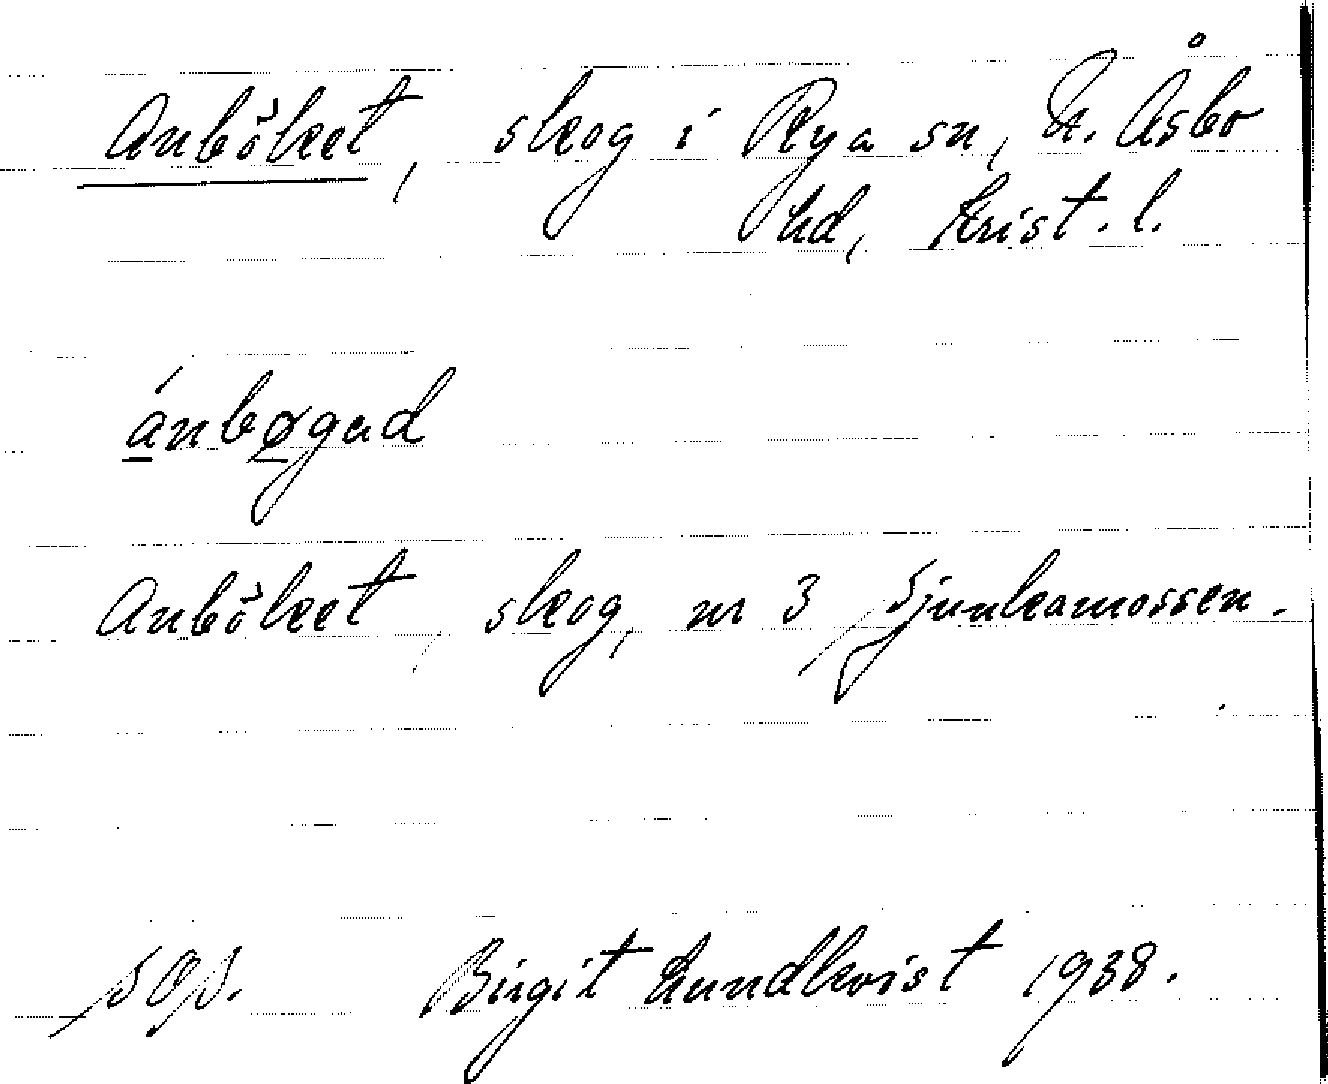 Anböket, skog i Rya sn, N. Åsbo
hd, Krist. l.
ánbøgad
Anböket, skog, nr 3 Sjunkamossen.
SOS. Birgit Lundkvist 1938.